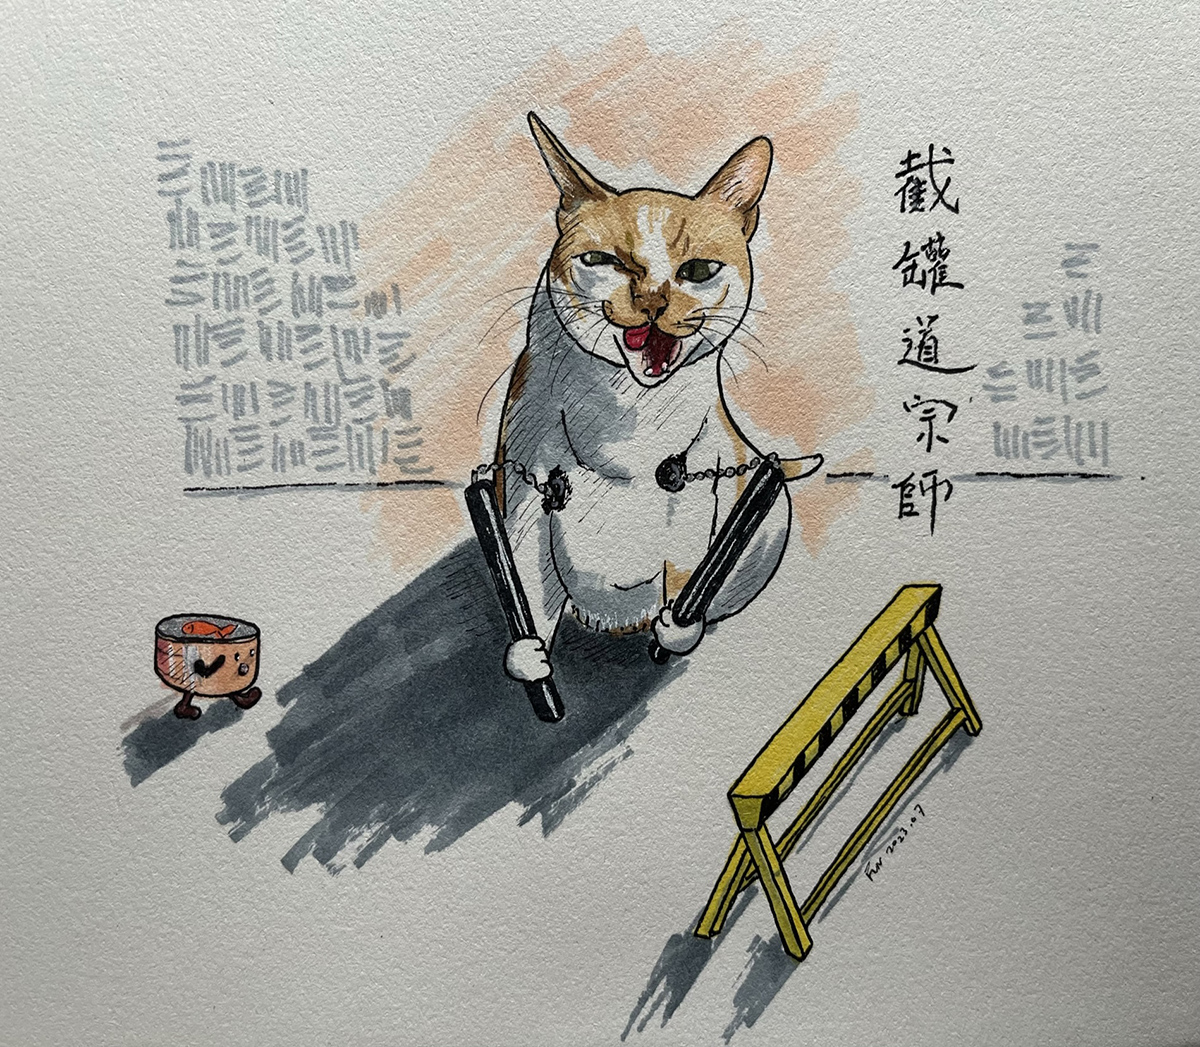 截罐道宗師
Fun 2023.07